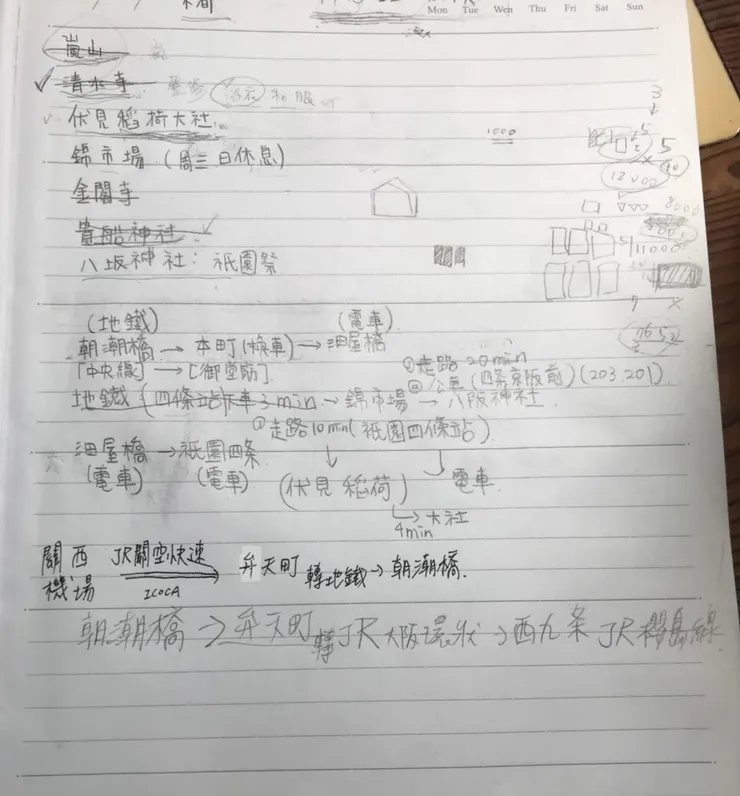 Mon Tue Wed Thu Fri Sat Sun
嵐山
清水寺 和服
伏見稻荷大社
錦市場 (周三日休息)
金閣寺
貴船神社
八坂神社: 祇園祭
1000
3
5
12000
8000
11000
(地鐵) (電車)
朝潮橋 → 本町(換車) → 淀屋橋
「中央線」→「御堂筋」
①走路20min
②公車(四條京阪前)(203.201)
地鐵(四條站下車3min → 錦市場 → 八阪神社
②走路10min(祇園四條站)
淀屋橋 → 祇園四条
(電車) (電車) (伏見稻荷) 電車
4min 大社
關西機場 JR關空快速 ICOCA → 弁天町 轉地鐵 → 朝潮橋.
朝潮橋 → 弁天町 轉 JR大阪環狀 → 西九条 JR櫻島線